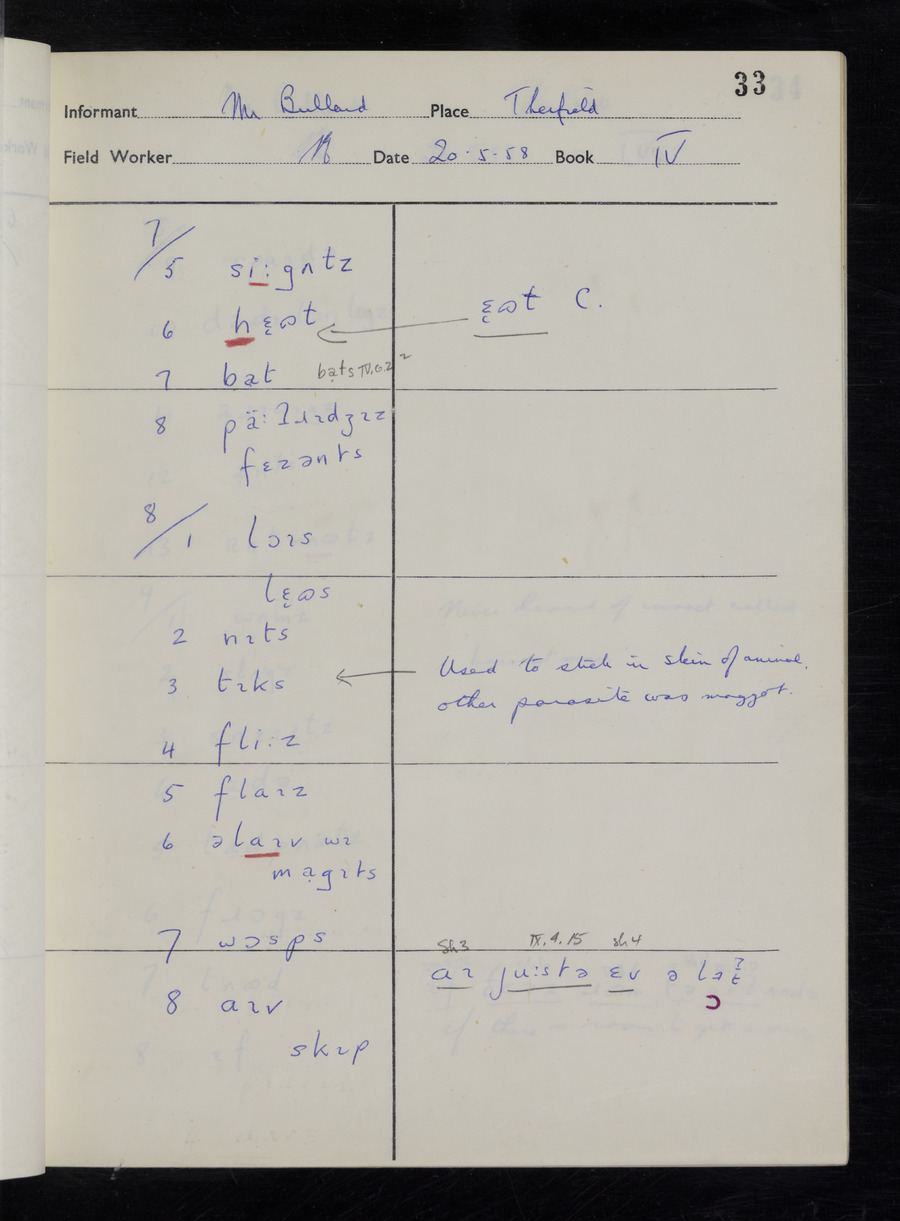 33
Informant Mr Bullard Place Therfield
Field Worker Date 20·5·58 Book IV
7/5 si:gʌtz
6 hɛ̞ɷt ɛ̞ɷt C.
7 bat bạts IV.6.2
8
fɛzənts
8/1 lɔɪs
lɛ̞ɷs
2 nɪts
3 tɪks Used to stick in skin of animal.
other parasite was maggot.
4 fli:z
5 flaɪz
6 əlaɪv wɪ
mạgɪts
7 wɔsps Sh3 IX.4.15 Sh4
aɪ ju:stə ɛv ə
8 aɪv
skɪp